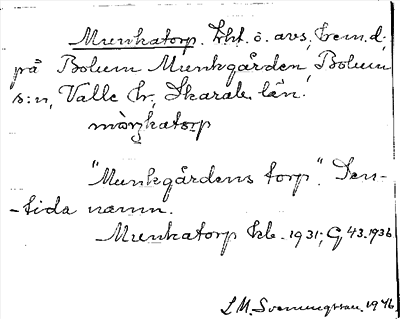 Munkatorp. Lht. ö. avs. bem.d.
på Bolum Munkgården, Bolum
s:n, Valle hr, Skarab. län.
"Munkgårdens torp". Sen-
-tida namn.
Munkatorp kb. 1931; G 43. 1936
L M. Svenungsson. 1946